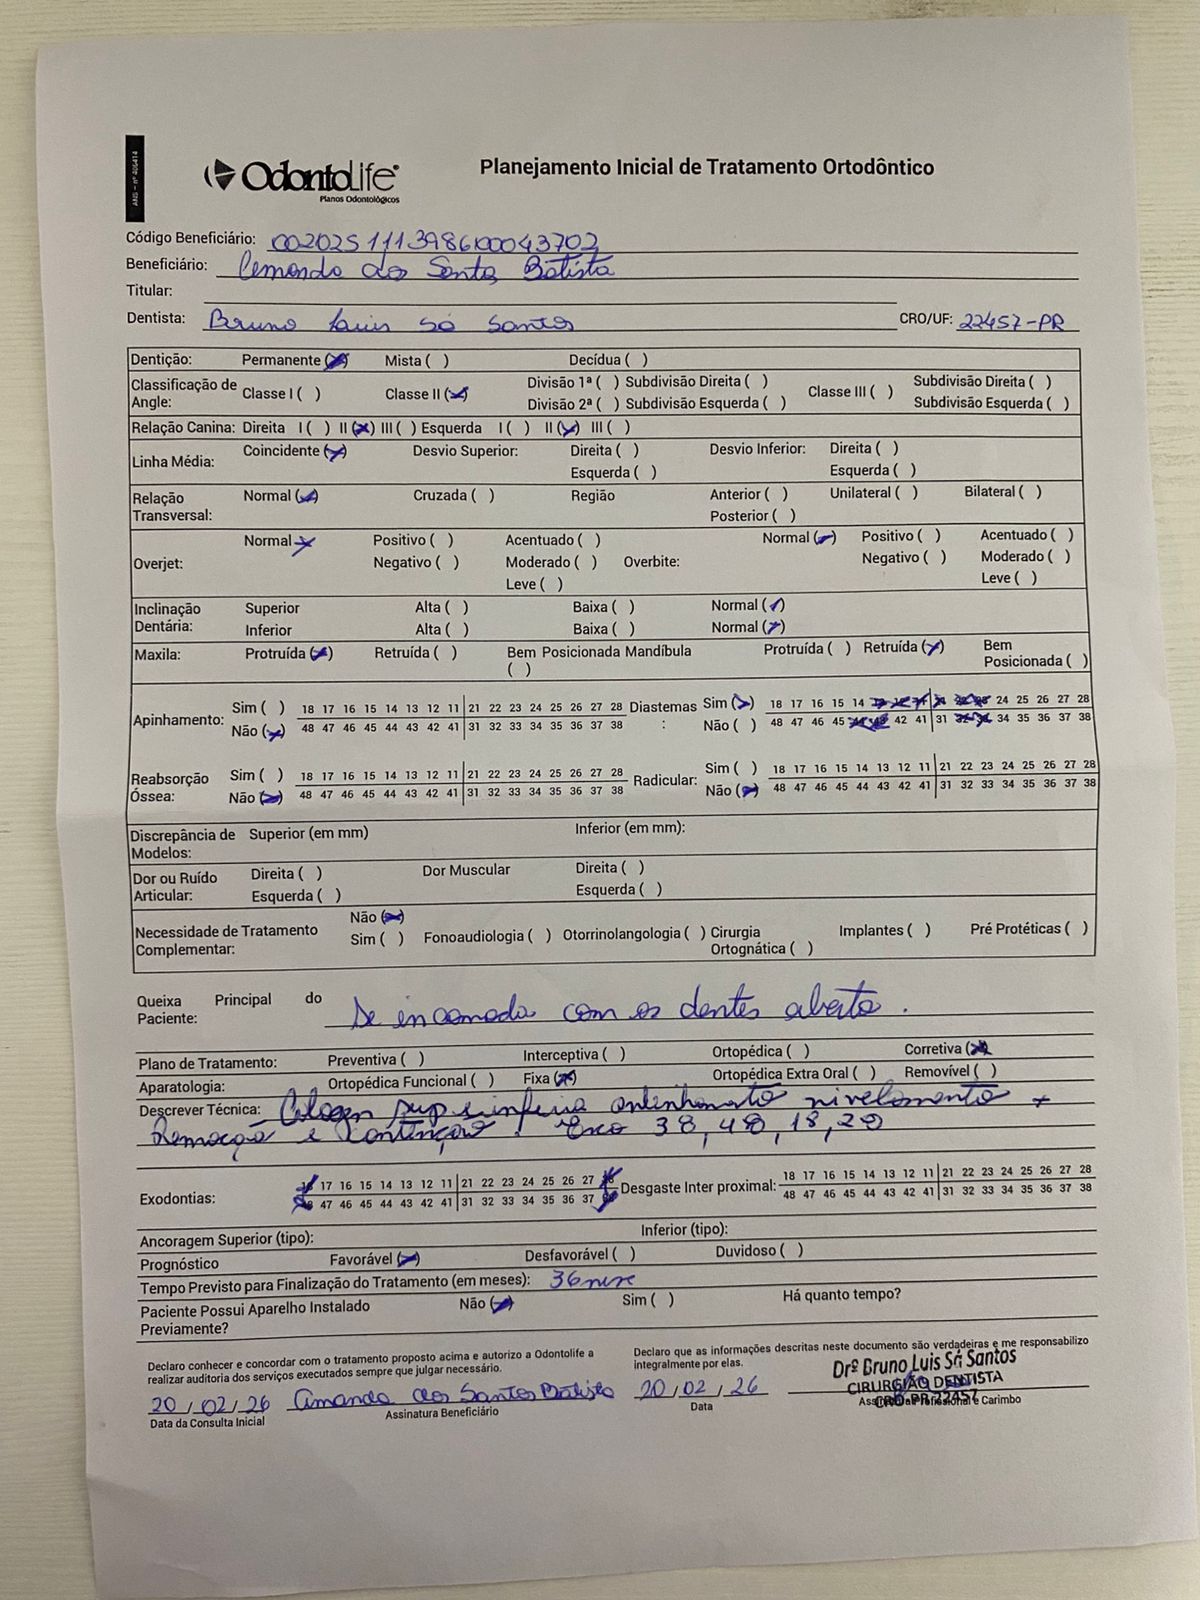 ANS - nº 406414
OdontoLife
Planos Odontológicos
Planejamento Inicial de Tratamento Ortodôntico
Código Beneficiário: 0020251113986100043702
Beneficiário: Amanda dos Santos Batista
Titular:
Dentista: Bruno Luis Sá Santos CRO/UF: 22457-PR
Dentição: Permanente (X) Mista ( ) Decídua ( )
Classificação de Angle: Classe I ( ) Classe II (X) Divisão 1ª ( ) Subdivisão Direita ( ) Classe III ( ) Subdivisão Direita ( )
Divisão 2ª ( ) Subdivisão Esquerda ( ) Subdivisão Esquerda ( )
Relação Canina: Direita I ( ) II (X) III ( ) Esquerda I ( ) II (X) III ( )
Linha Média: Coincidente (X) Desvio Superior: Direita ( ) Desvio Inferior: Direita ( )
Esquerda ( ) Esquerda ( )
Relação Transversal: Normal (X) Cruzada ( ) Região Anterior ( ) Unilateral ( ) Bilateral ( )
Posterior ( )
Overjet: Normal (X) Positivo ( ) Acentuado ( ) Overbite: Normal (X) Positivo ( ) Acentuado ( )
Negativo ( ) Moderado ( ) Negativo ( ) Moderado ( )
Leve ( ) Leve ( )
Inclinação Dentária: Superior Alta ( ) Baixa ( ) Normal (X)
Inferior Alta ( ) Baixa ( ) Normal (X)
Maxila: Protruída (X) Retruída ( ) Bem Posicionada ( ) Mandíbula Protruída ( ) Retruída (X) Bem Posicionada ( )
Apinhamento: Sim ( ) 18 17 16 15 14 13 12 11 21 22 23 24 25 26 27 28 Diastemas: Sim (X) 18 17 16 15 14 13 12 11 21 22 23 24 25 26 27 28
Não (X) 48 47 46 45 44 43 42 41 31 32 33 34 35 36 37 38 Não ( ) 48 47 46 45 44 43 42 41 31 32 33 34 35 36 37 38
Reabsorção Óssea: Sim ( ) 18 17 16 15 14 13 12 11 21 22 23 24 25 26 27 28 Radicular: Sim ( ) 18 17 16 15 14 13 12 11 21 22 23 24 25 26 27 28
Não (X) 48 47 46 45 44 43 42 41 31 32 33 34 35 36 37 38 Não (X) 48 47 46 45 44 43 42 41 31 32 33 34 35 36 37 38
Discrepância de Modelos: Superior (em mm) Inferior (em mm):
Dor ou Ruído Articular: Direita ( ) Dor Muscular Direita ( )
Esquerda ( ) Esquerda ( )
Necessidade de Tratamento Complementar: Não (X)
Sim ( ) Fonoaudiologia ( ) Otorrinolangologia ( ) Cirurgia Ortognática ( ) Implantes ( ) Pré Protéticas ( )
Queixa Principal do Paciente: Se incomoda com os dentes aberto.
Plano de Tratamento: Preventiva ( ) Interceptiva ( ) Ortopédica ( ) Corretiva (X)
Aparatologia: Ortopédica Funcional ( ) Fixa (X) Ortopédica Extra Oral ( ) Removível ( )
Descrever Técnica: Colagem sup inferior alinhamento nivelamento +
Remoção e Contenção. Exo 38, 48, 18, 28
Exodontias: 18 17 16 15 14 13 12 11 21 22 23 24 25 26 27 28 Desgaste Inter proximal: 18 17 16 15 14 13 12 11 21 22 23 24 25 26 27 28
48 47 46 45 44 43 42 41 31 32 33 34 35 36 37 38 48 47 46 45 44 43 42 41 31 32 33 34 35 36 37 38
Ancoragem Superior (tipo): Inferior (tipo):
Prognóstico Favorável (X) Desfavorável ( ) Duvidoso ( )
Tempo Previsto para Finalização do Tratamento (em meses): 36
Paciente Possui Aparelho Instalado Previamente? Não (X) Sim ( ) Há quanto tempo?
Declaro conhecer e concordar com o tratamento proposto acima e autorizo a Odontolife a
realizar auditoria dos serviços executados sempre que julgar necessário.
Declaro que as informações descritas neste documento são verdadeiras e me responsabilizo
integralmente por elas.
Drº Bruno Luis Sá Santos
CIRURGIÃO DENTISTA
CRO-PR 22457
20/02/26 Amanda dos Santos Batista 20/02/26
Data da Consulta Inicial Assinatura Beneficiário Data Assinatura Profissional e Carimbo